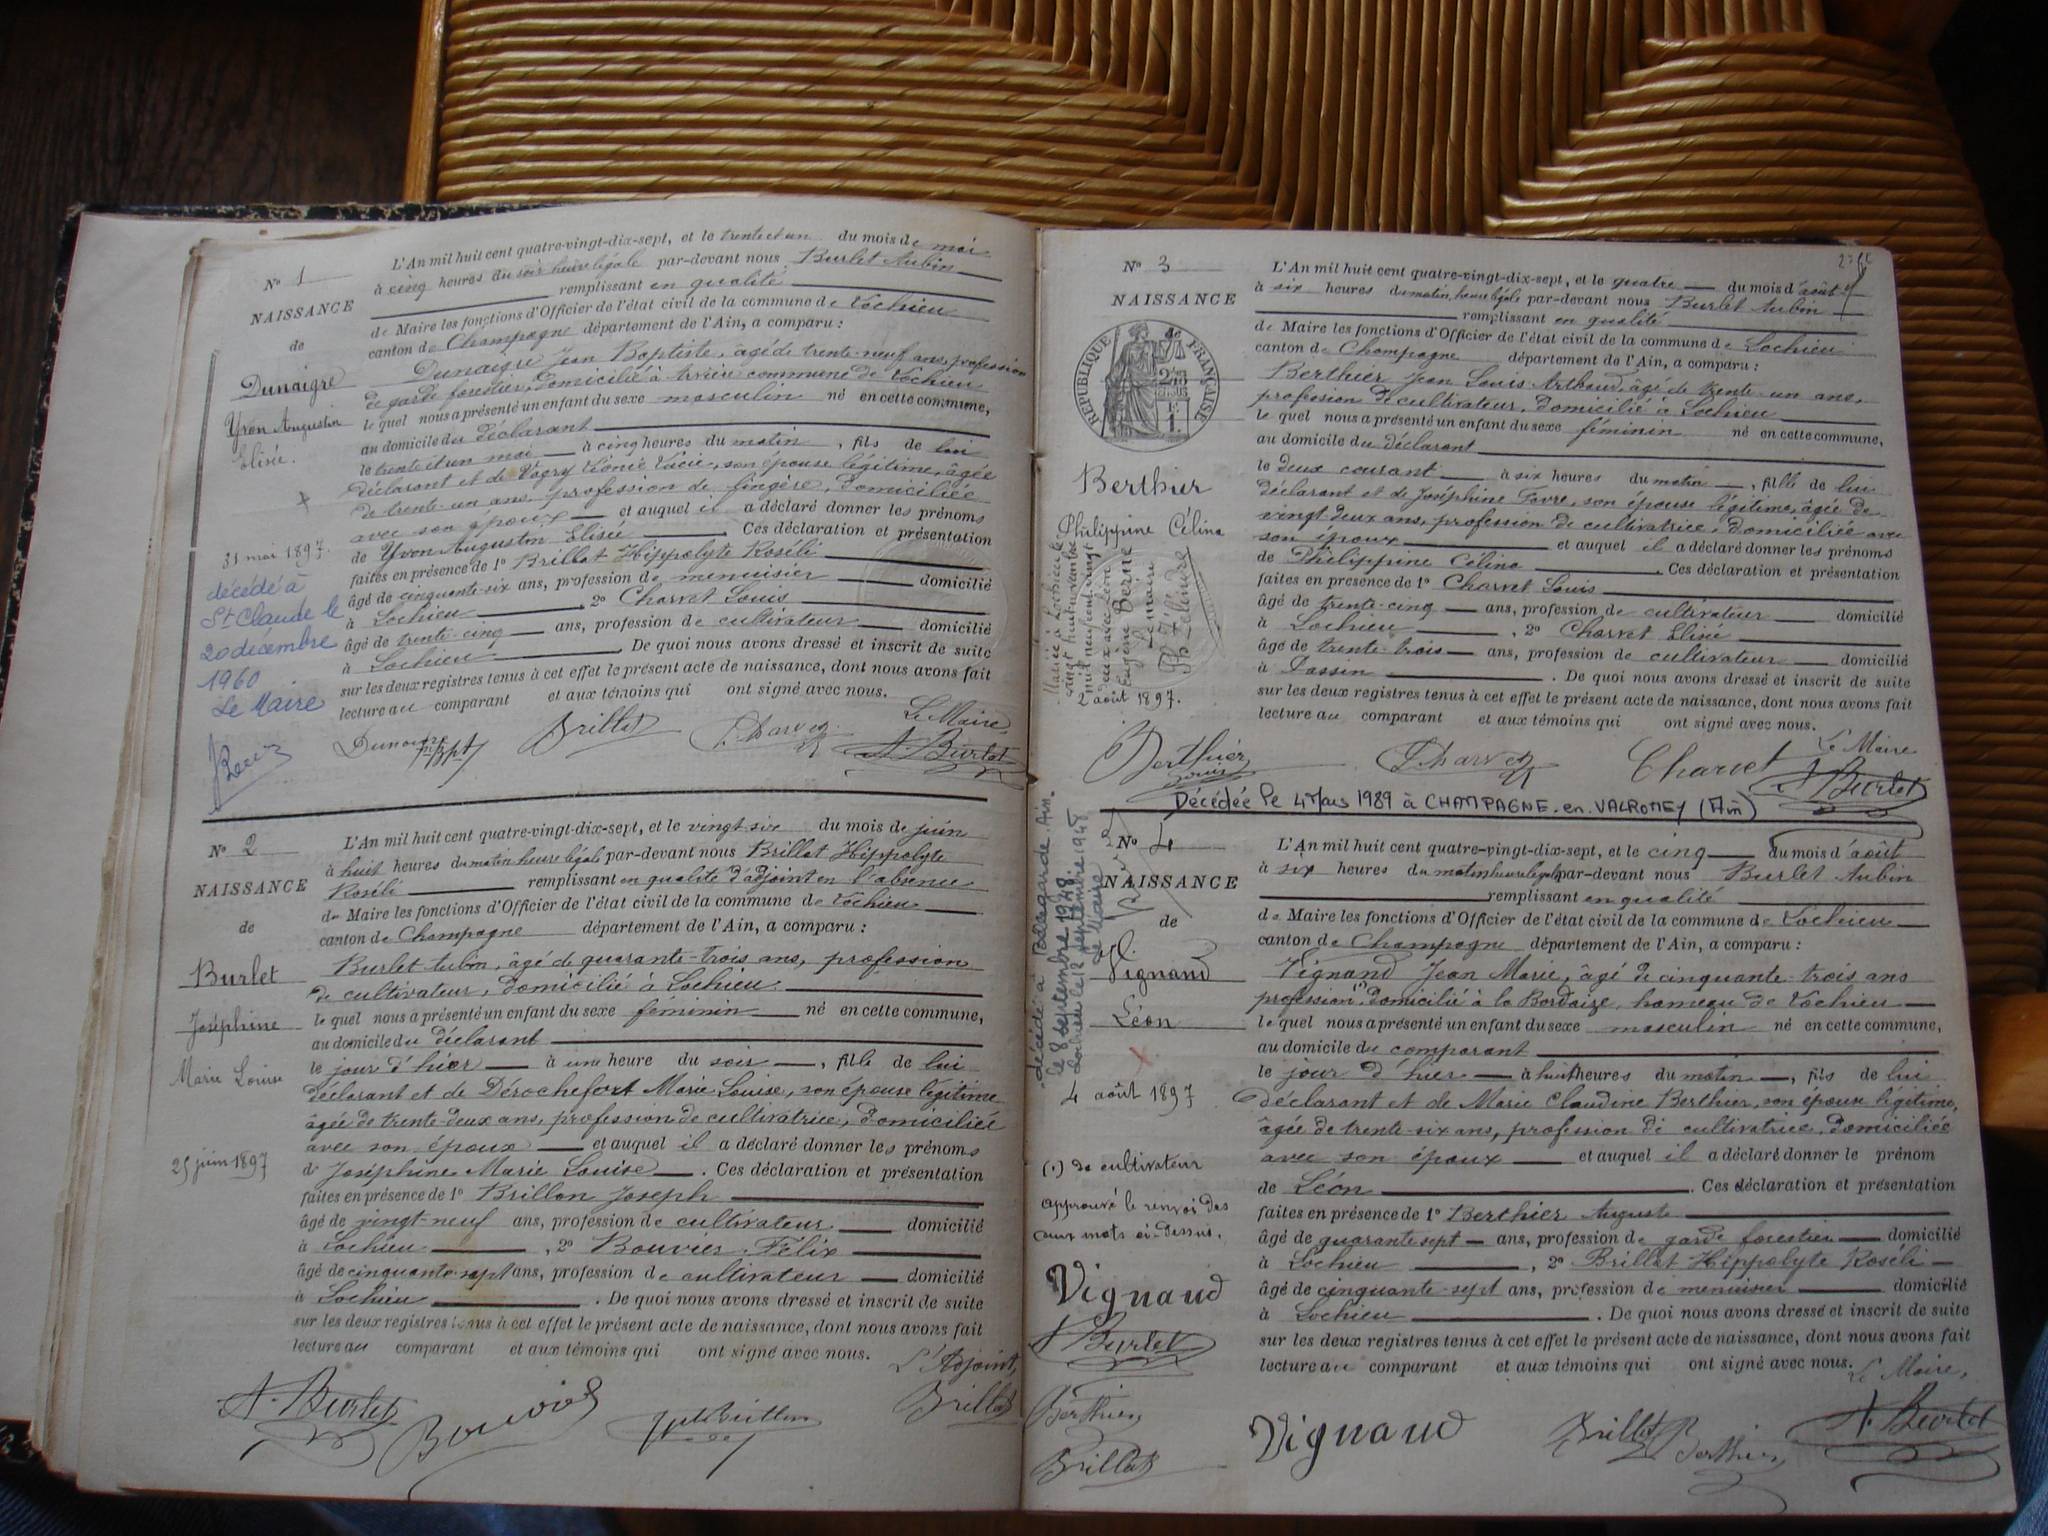 N° 1
NAISSANCE
de
Dunaigre
Yvon Augustin
Elisée.
31 mai 1897.
décédé à
St Claude le
20 décembre
1960
Le Maire
L'An mil huit cent quatre-vingt-dix-sept, et le trente et un du mois de mai
à cinq heures du soir heure légale par-devant nous Burlet Aubin
remplissant en qualité
de Maire les fonctions d'Officier de l'état civil de la commune de Lochieu
canton de Champagne département de l'Ain, a comparu :
Dunaigre Jean Baptiste, âgé de trente-neuf ans, profession
de garde forestier, domicilié à commune de Lochieu
le quel nous a présenté un enfant du sexe masculin né en cette commune,
au domicile du déclarant
le trente et un mai à cinq heures du matin, fils de lui
déclarant et de Vagry Léonie Lucie, son épouse légitime, âgée
de trente-un ans, profession de lingère, domiciliée
avec son époux et auquel il a déclaré donner les prénoms
de Yvon Augustin Elisée. Ces déclaration et présentation
faites en présence de 1° Brillat Hippolyte Roséli
âgé de cinquante-six ans, profession de menuisier domicilié
à Lochieu, 2° Charvet Louis
âgé de trente-cinq ans, profession de cultivateur domicilié
à Lochieu. De quoi nous avons dressé et inscrit de suite
sur les deux registres tenus à cet effet le présent acte de naissance, dont nous avons fait
lecture au comparant et aux témoins qui ont signé avec nous.
Le Maire,
Dunaigre Brillat Charvet A. Burlet
N° 2
NAISSANCE
de
Burlet
Joséphine
Marie Louise
25 juin 1897
L'An mil huit cent quatre-vingt-dix-sept, et le vingt-six du mois de juin
à huit heures du matin heure légale par-devant nous Brillat Hippolyte
Roséli remplissant en qualité d'adjoint en l'absence
de Maire les fonctions d'Officier de l'état civil de la commune de Lochieu
canton de Champagne département de l'Ain, a comparu :
Burlet Aubin, âgé de quarante-trois ans, profession
de cultivateur, domicilié à Lochieu
le quel nous a présenté un enfant du sexe féminin né en cette commune,
au domicile du déclarant
le jour d'hier à une heure du soir, fille de lui
déclarant et de Dérochefort Marie Louise, son épouse légitime
âgée de trente-deux ans, profession de cultivatrice, domiciliée
avec son époux et auquel il a déclaré donner les prénoms
de Joséphine Marie Louise. Ces déclaration et présentation
faites en présence de 1° Brillon Joseph
âgé de vingt-neuf ans, profession de cultivateur domicilié
à Lochieu, 2° Bouvier Félix
âgé de cinquante-sept ans, profession de cultivateur domicilié
à Lochieu. De quoi nous avons dressé et inscrit de suite
sur les deux registres tenus à cet effet le présent acte de naissance, dont nous avons fait
lecture au comparant et aux témoins qui ont signé avec nous.
L'Adjoint,
A. Burlet Bouvier Brillat
N° 3
NAISSANCE
RÉPUBLIQUE FRANÇAISE
Berthier
Philippine Célina
Mariée à Lochieu le
vingt huit
mil neuf cent vingt
deux avec Léon
Eugène Berne
Le maire
2 août 1897.
L'An mil huit cent quatre-vingt-dix-sept, et le quatre du mois d'août
à six heures du matin, heure légale par-devant nous Burlet Aubin
remplissant en qualité
de Maire les fonctions d'Officier de l'état civil de la commune de Lochieu
canton de Champagne département de l'Ain, a comparu :
Berthier Jean Louis Arthaud, âgé de trente-un ans,
profession de cultivateur, domicilié à Lochieu
le quel nous a présenté un enfant du sexe féminin né en cette commune,
au domicile du déclarant
le deux courant à six heures du matin, fille de lui
déclarant et de Joséphine Favre, son épouse légitime, âgée de
vingt-deux ans, profession de cultivatrice, domiciliée avec
son époux et auquel il a déclaré donner les prénoms
de Philippine Célina. Ces déclaration et présentation
faites en présence de 1° Charvet Louis
âgé de trente-cinq ans, profession de cultivateur domicilié
à Lochieu, 2° Charvet Elisée
âgé de trente-trois ans, profession de cultivateur domicilié
à Passin. De quoi nous avons dressé et inscrit de suite
sur les deux registres tenus à cet effet le présent acte de naissance, dont nous avons fait
lecture au comparant et aux témoins qui ont signé avec nous.
Le Maire
Berthier Louis Charvet Charvet A. Burlet
Décédée le 4 Mars 1989 à CHAMPAGNE-en-VALROMEY (Ain)
N° 4
NAISSANCE
de
Vignand
Léon
4 août 1897
décédé à Bellegarde Ain.
le 8 septembre 1948
Lochieu le 12 septembre 1948
Le Maire
(1) de cultivateur
approuvé le renvoi des
aux mots ci-dessus.
Vignand
A. Burlet
Berthier
Brillat
L'An mil huit cent quatre-vingt-dix-sept, et le cinq du mois d'août
à six heures du matin heure légale par-devant nous Burlet Aubin
remplissant en qualité
de Maire les fonctions d'Officier de l'état civil de la commune de Lochieu
canton de Champagne département de l'Ain, a comparu :
Vignand Jean Marie, âgé de cinquante-trois ans
profession (1) domicilié à la Bordaize, hameau de Lochieu
le quel nous a présenté un enfant du sexe masculin né en cette commune,
au domicile du comparant
le jour d'hier à huit heures du matin, fils de lui
déclarant et de Marie Claudine Berthier, son épouse légitime,
âgée de trente-six ans, profession de cultivatrice, domiciliée
avec son époux et auquel il a déclaré donner le prénom
de Léon. Ces déclaration et présentation
faites en présence de 1° Berthier Auguste
âgé de quarante sept ans, profession de garde forestier domicilié
à Lochieu, 2° Brillat Hippolyte Roséli
âgé de cinquante-sept ans, profession de menuisier domicilié
à Lochieu. De quoi nous avons dressé et inscrit de suite
sur les deux registres tenus à cet effet le présent acte de naissance, dont nous avons fait
lecture au comparant et aux témoins qui ont signé avec nous.
Le Maire,
Vignand Brillat Berthier A. Burlet